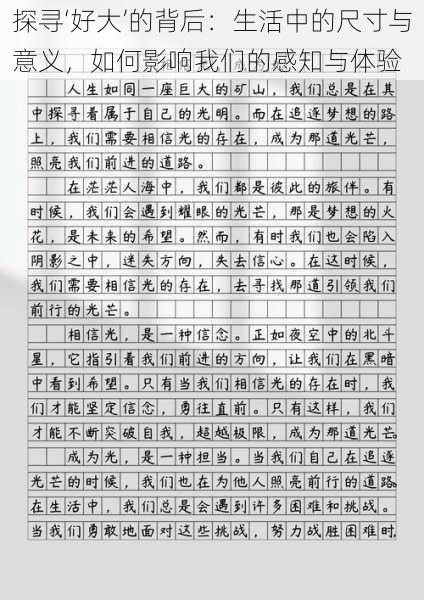 探寻‘好大’的背后：生活中的尺寸与
意义，如何影响我们的感知与体验
人生如同一座巨大的矿山，我们总是在其
中探寻着属于自己的光明。而在追逐梦想的路
上，我们需要相信光的存在，成为那道光芒，
照亮我们前进的道路。
在茫茫人海中，我们都是彼此的旅伴。有
时候，我们会遇到耀眼的光芒，那是梦想的火
花，是未来的希望。然而，有时我们也会陷入
阴影之中，迷失方向，失去信心。在这时候，
我们需要相信光的存在，去寻找那道引领我们
前行的光芒。
相信光，是一种信念。正如夜空中的北斗
星，它指引着我们前进的方向，让我们在黑暗
中看到希望。只有当我们相信光的存在时，我
们才能坚定信念，勇往直前。只有这样，我们
才能不断突破自我，超越极限，成为那道光芒。
成为光，是一种担当。当我们自己在追逐
光芒的时候，我们也在为他人照亮前行的道路。
在生活中，我们总是会遇到许多困难和挑战。
当我们勇敢地面对这些挑战，努力战胜困难时，